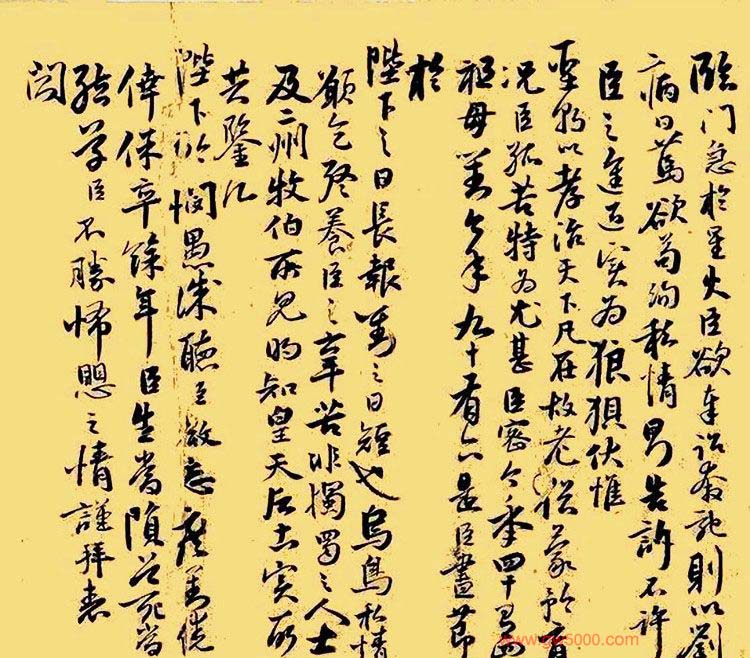 臨門急於星火臣欲奉詔奔馳則以劉
病日篤欲苟徇私情則告訴不許
臣之進退實為狼狽伏惟
聖朝以孝治天下凡在故老猶蒙矜育
况臣孤苦特為尤甚臣密今年四十有四
祖母劉今年九十有六是臣盡節
於
陛下之日長報劉之日短也烏鳥私情
願乞終養臣之辛苦非獨蜀之人士
及二州牧伯所見明知皇天后土實所
共鑒
陛下矜憫愚誠聽臣微志庶劉僥
倖保卒餘年臣生當隕首死當
結草臣不勝怖懼之情謹拜表
聞